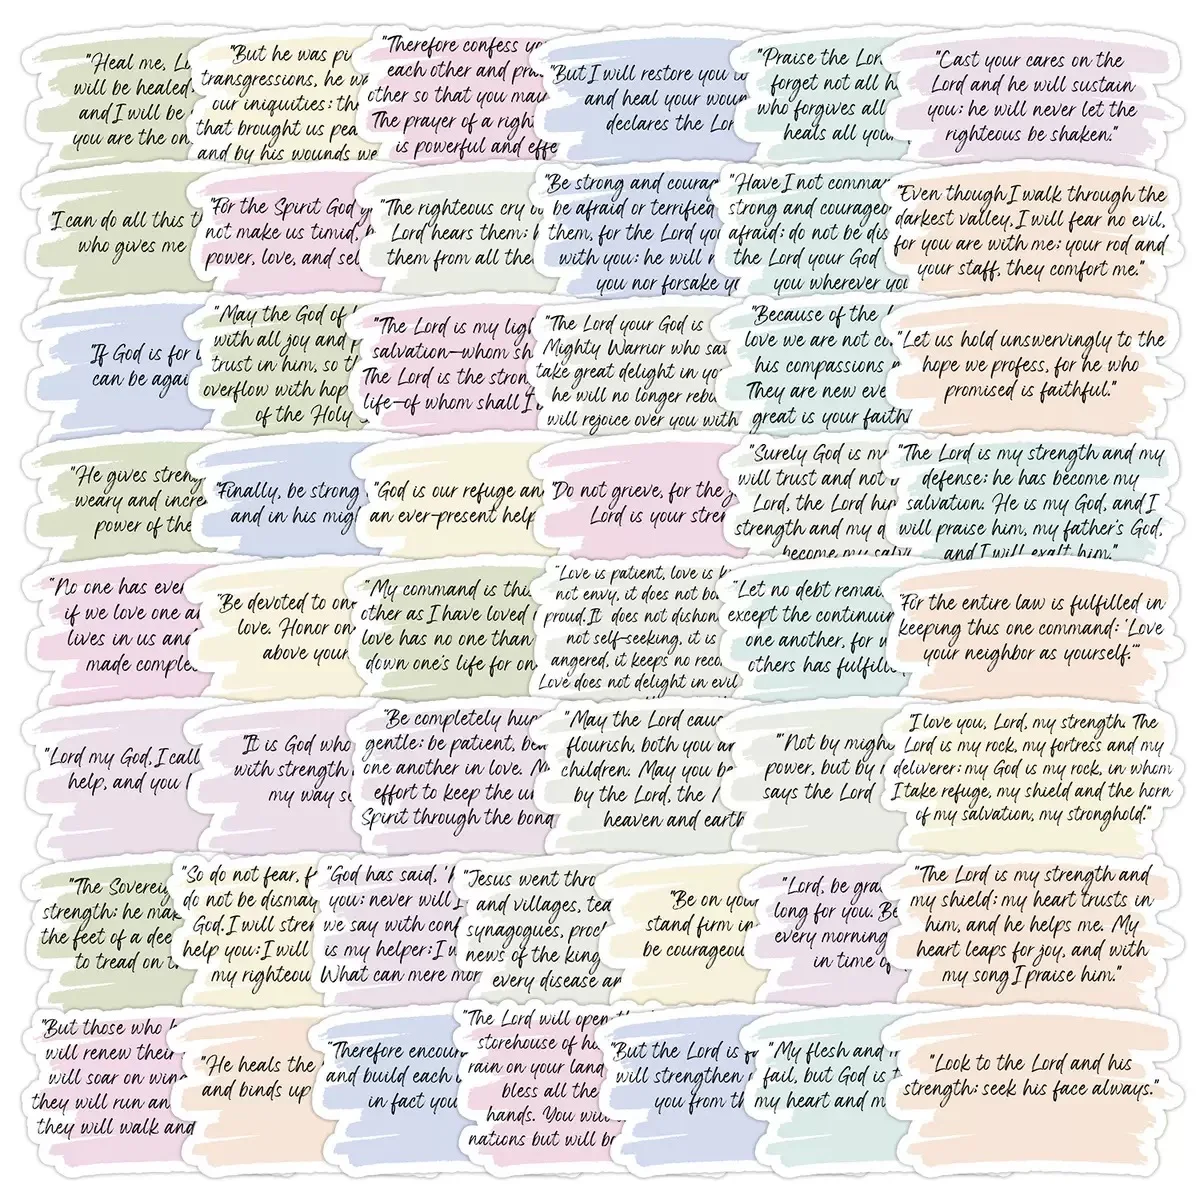 "Heal me, L
will be healed
and I will be
you are the on
"But he was pi
transgressions, he w
our iniquities; th
that brought us pea
and by his wounds we
"Therefore confess yo
each other and pra
other so that you may
The prayer of a right
is powerful and effe
"But I will restore you to
and heal your woun
declares the Lor
"Praise the Lor
forget not all h
who forgives all
heals all you
"Cast your cares on the
Lord and he will sustain
you; he will never let the
righteous be shaken."
"I can do all this t
who gives me
"For the Spirit God g
not make us timid,
power, love, and sel
"The righteous cry o
Lord hears them; h
them from all the
"Be strong and courag
be afraid or terrified
them, for the Lord yo
with you; he will n
you nor forsake yo
"Have I not comma
strong and courageo
afraid; do not be dis
the Lord your God
you wherever you
"Even though I walk through the
darkest valley, I will fear no evil,
for you are with me; your rod and
your staff, they comfort me."
"If God is for u
can be agai
"May the God of h
with all joy and p
trust in him, so th
overflow with hop
of the Holy
"The Lord is my ligh
salvation—whom sh
The Lord is the stron
life—of whom shall I
"The Lord your God is
Mighty Warrior who sav
take great delight in yo
he will no longer rebu
will rejoice over you with
"Because of the L
love we are not co
his compassions n
They are new eve
great is your faith
"Let us hold unswervingly to the
hope we profess, for he who
promised is faithful."
"He gives streng
weary and incre
power of the
"Finally, be strong
and in his mig
"God is our refuge an
an ever-present help
"Do not grieve, for the j
Lord is your stren
"Surely God is m
will trust and not b
Lord, the Lord him
strength and my d
become my salv
"The Lord is my strength and my
defense; he has become my
salvation. He is my God, and I
will praise him, my father's God,
and I will exalt him."
"No one has ever
if we love one a
lives in us and
made comple
"Be devoted to one
love. Honor on
above your
"My command is this
other as I have loved
love has no one than
down one's life for on
"Love is patient, love is k
not envy, it does not bo
proud. It does not dishon
not self-seeking, it is
angered, it keeps no reco
Love does not delight in evil
"Let no debt remai
except the continuin
one another, for w
others has fulfill
"For the entire law is fulfilled in
keeping this one command: 'Love
your neighbor as yourself.'"
"Lord my God, I call
help, and you h
"It is God who
with strength
my way se
"Be completely hum
gentle; be patient, bea
one another in love. M
effort to keep the un
Spirit through the bond
"May the Lord caus
flourish, both you an
children. May you be
by the Lord, the M
heaven and earth
"'Not by might
power, but by
says the Lord
"I love you, Lord, my strength. The
Lord is my rock, my fortress and my
deliverer; my God is my rock, in whom
I take refuge, my shield and the horn
of my salvation, my stronghold."
"The Sovereig
strength; he mak
the feet of a dee
to tread on t
"So do not fear, f
do not be dismay
God. I will stren
help you; I will
my righteou
"God has said, 'N
you; never will I
we say with conf
is my helper; I w
What can mere mor
"Jesus went thro
and villages, tea
synagogues, procl
news of the king
every disease an
"Be on you
stand firm in
be courageou
"Lord, be gra
long for you. Be
every morning
in time of
"The Lord is my strength and
my shield; my heart trusts in
him, and he helps me. My
heart leaps for joy, and with
my song I praise him."
"But those who h
will renew their
will soar on win
they will run an
they will walk and
"He heals the
and binds up
"Therefore encour
and build each
in fact you
"The Lord will open th
storehouse of h
rain on your land
bless all the
hands. You will
nations but will b
"But the Lord is f
will strengthen
you from th
"My flesh and m
fail, but God is t
my heart and m
"Look to the Lord and his
strength; seek his face always."